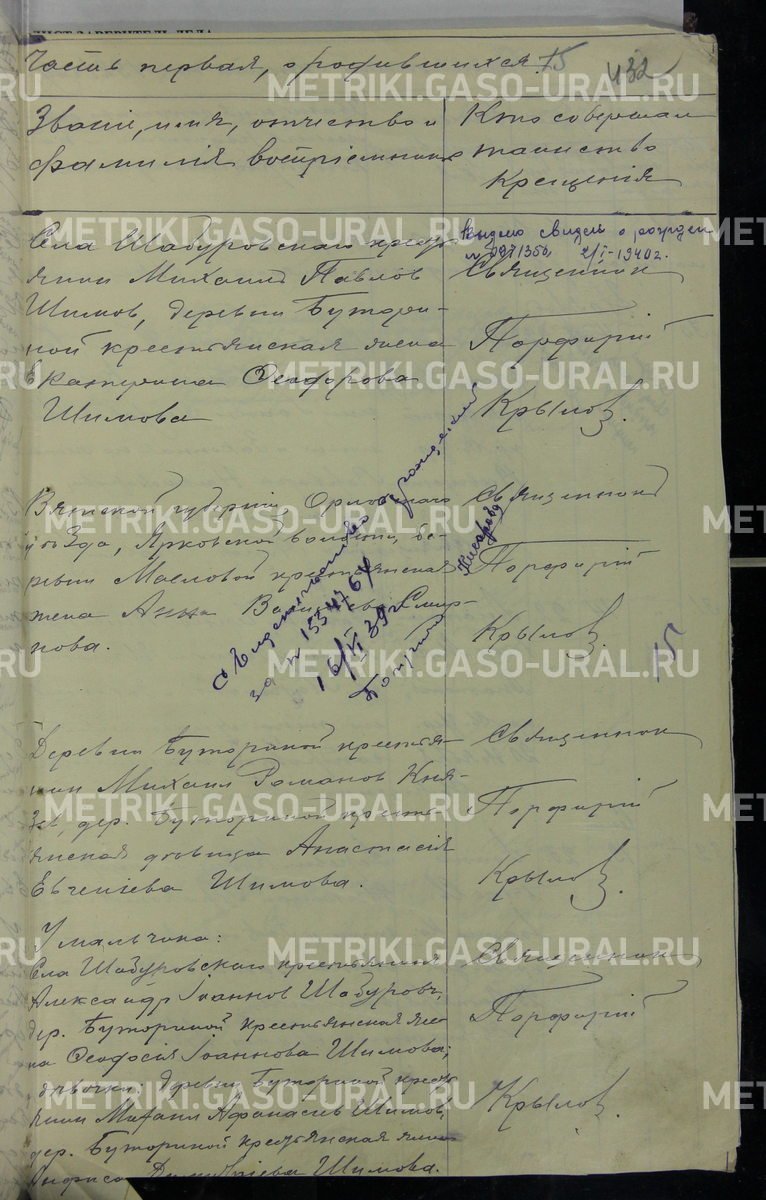 Часть первая, о родившихся. 15 432
Званіе, имя, отчество и
фамилія воспріемниковъ
Кто совершал
таинство
Крещенія
Села Шабуровскаго кресть-
янин Михаилъ Павлов
Шимов, деревни Бутори-
ной крестьянская жена
Екатерина Феодорова
Шимова
Выдано свидет о рожден
2/I-1940г.
Священник
Порфирій
Крылов.
Вятской губерніи, Орловскаго
уѣзда, волости, де-
ревни Масловой крестьянская
жена Анна Васильева Смир-
нова.
Священник
Порфирій
Крылов.
свидетельство о рождении
за № 1554764
16/VI 39г
Деревни Буториной крестья-
нин Михаил Романов Кня-
зев, дер. Буториной кресть-
янская дѣвица Анастасія
Евгеніева Шимова.
Священник
Порфирій
Крылов.
15
У мальчика:
Села Шабуровскаго крестьянин
Александр Іоаннов Шабуровъ,
дер. Буториной крестьянская же-
на Феодосія Іоаннова Шимова;
у дѣвочки: деревни Буториной кресть-
янин Михаил Афанасьев Шимов,
дер. Буториной крестьянская жена
Анфиса Димитріева Шимова.
Священник
Порфирій
Крылов.
METRIKI.GASO-URAL.RU